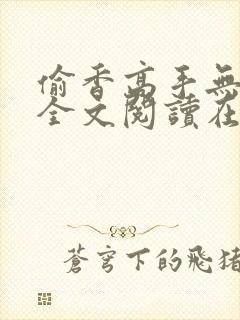 偷香高手無
全文閱讀在
蒼穹下的飛豬